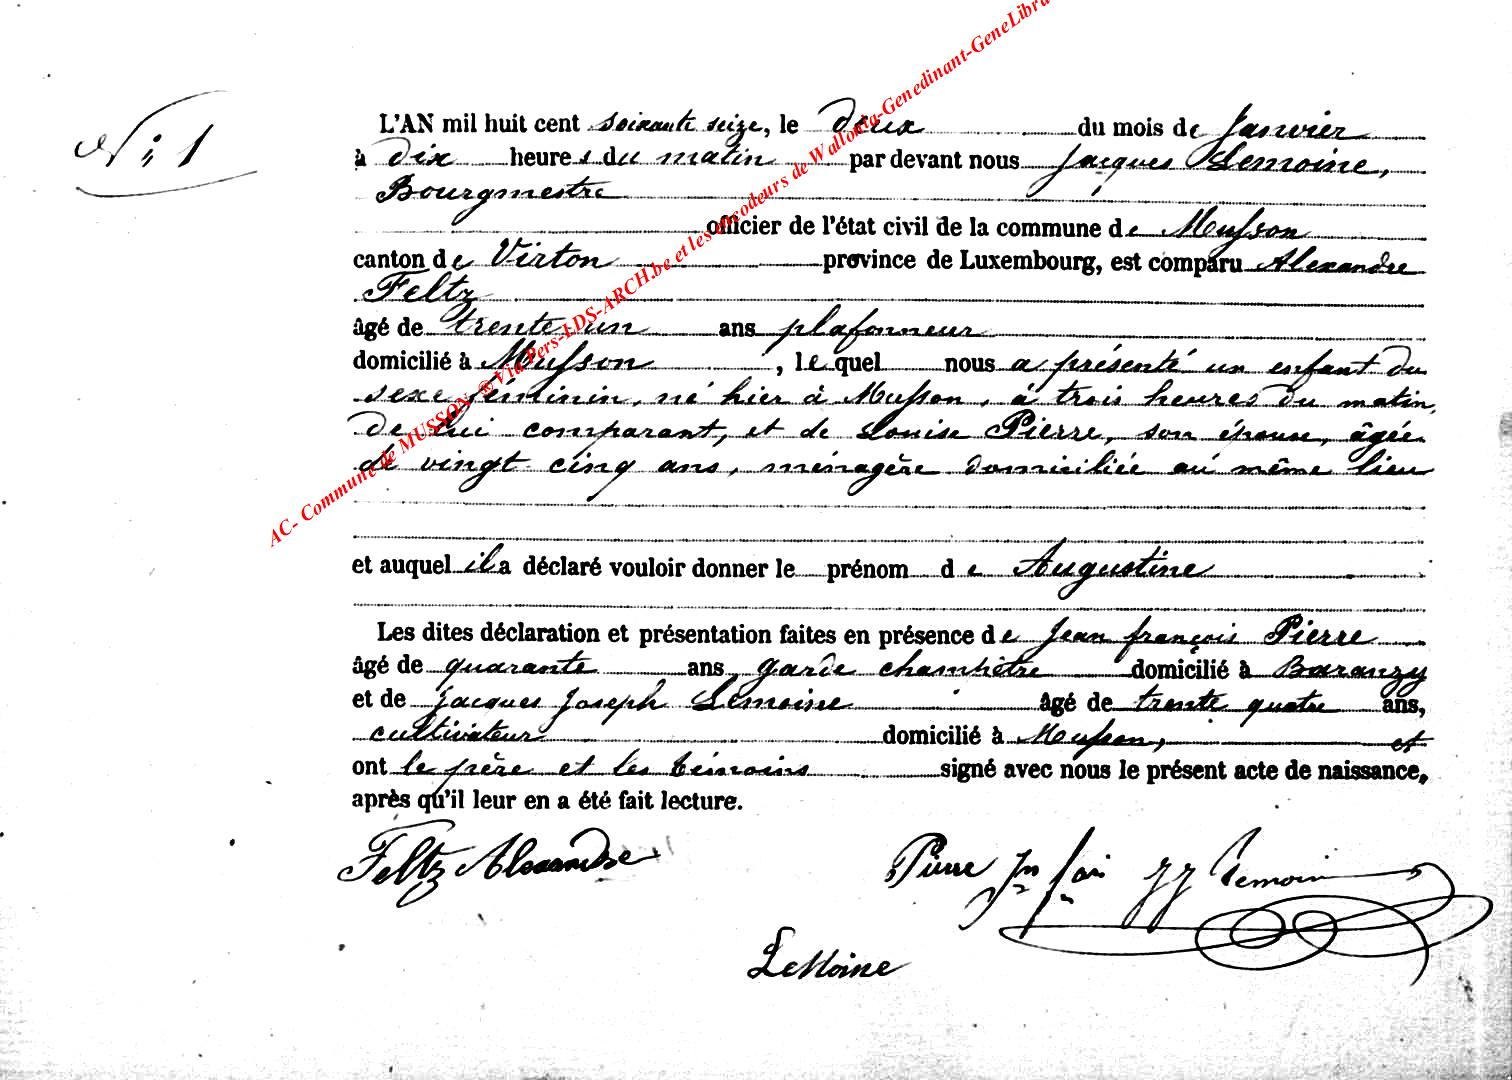 N: 1
L'AN mil huit cent soixante seize, le deux du mois de Janvier
à dix heures du matin par devant nous Jacques Lemoine,
Bourgmestre
officier de l'état civil de la commune de Musson
canton de Virton province de Luxembourg, est comparu Alexandre
Feltz
âgé de trente un ans plafonneur
domicilié à Musson, lequel nous a présenté un enfant du
sexe féminin, né hier à Musson, à trois heures du matin,
de lui comparant, et de Louise Pierre, son épouse, âgée
de vingt cinq ans, ménagère domiciliée au même lieu
et auquel il a déclaré vouloir donner le prénom de Augustine
Les dites déclaration et présentation faites en présence de Jean françois Pierre
âgé de quarante ans garde champêtre domicilié à Baranzy
et de Jacques Joseph Lemoine âgé de trente quatre ans,
cultivateur domicilié à Musson, et
ont le père et les témoins signé avec nous le présent acte de naissance,
après qu'il leur en a été fait lecture.
Feltz Alexandre Pierre Jn JJ Lemoine
LeMoine
AC- Commune de MUSSON ® Via Pers-LDS-ARCH.be et les encodeurs de Wallonia-Genedinant-GeneLibra